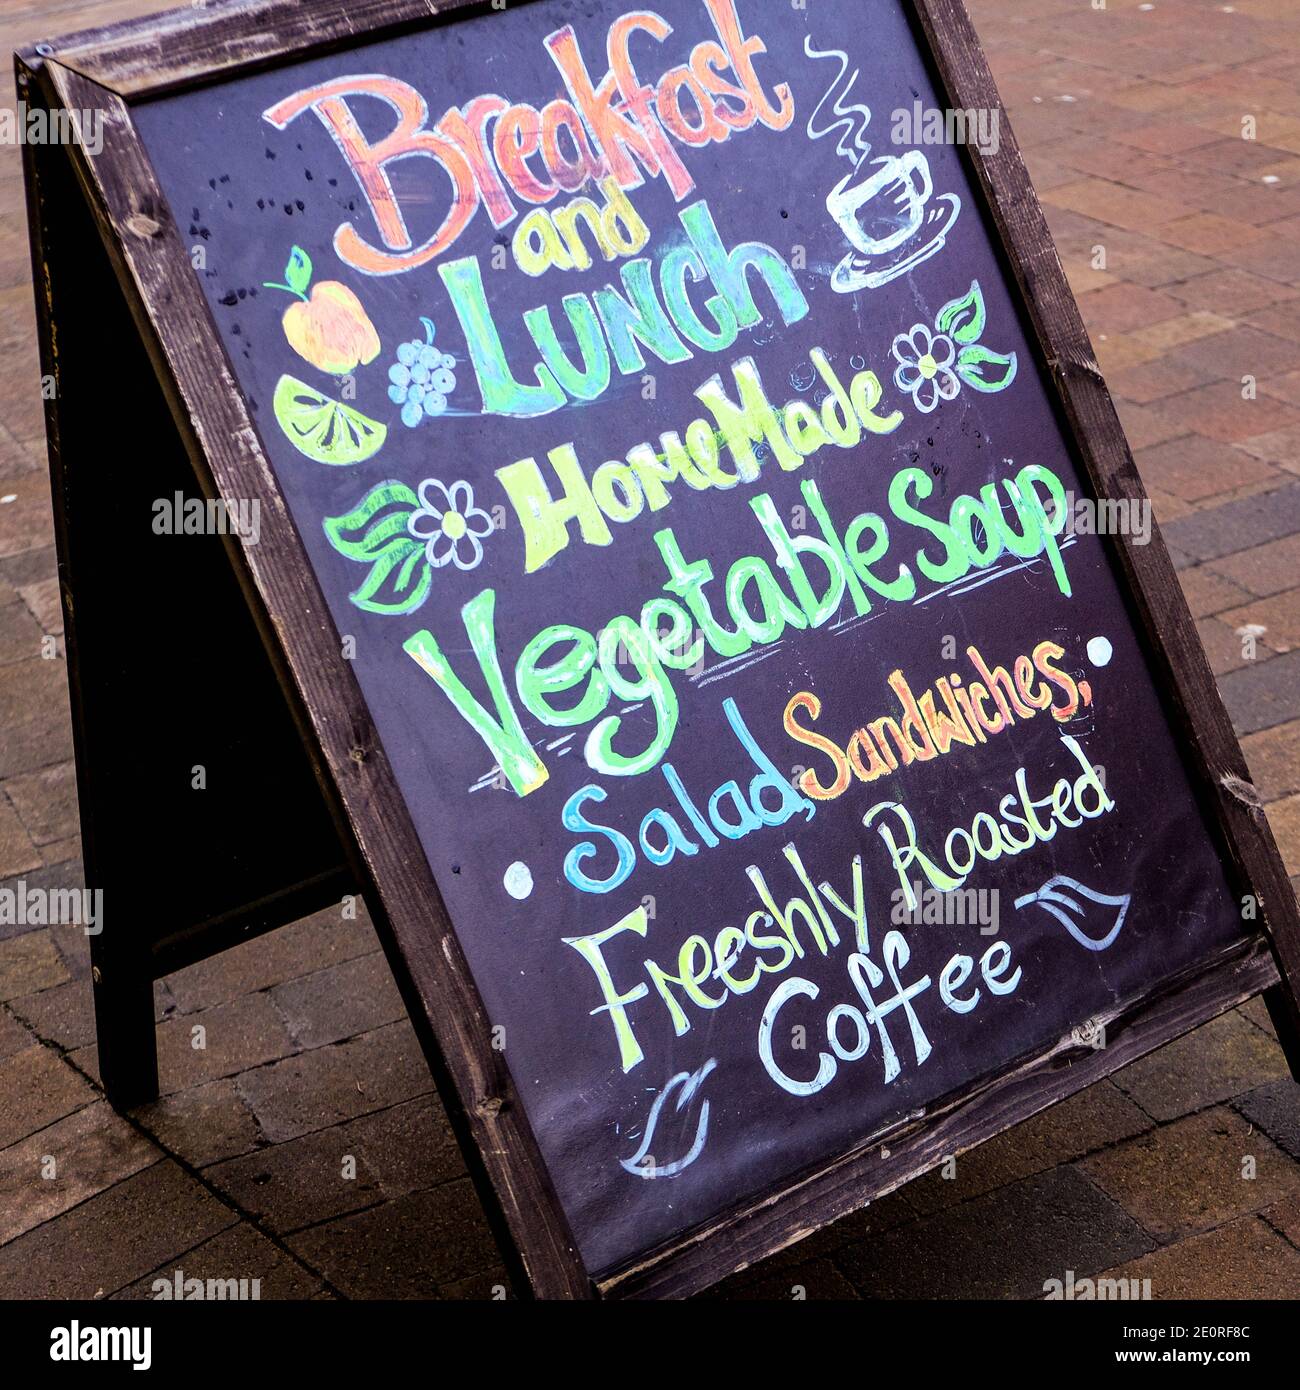 Breakfast
and
Lunch
HomeMade
Vegetable Soup
Salad, Sandwiches,
Freeshly Roasted
Coffee
alamy
Image ID: 2E0RF8C
www.alamy.com